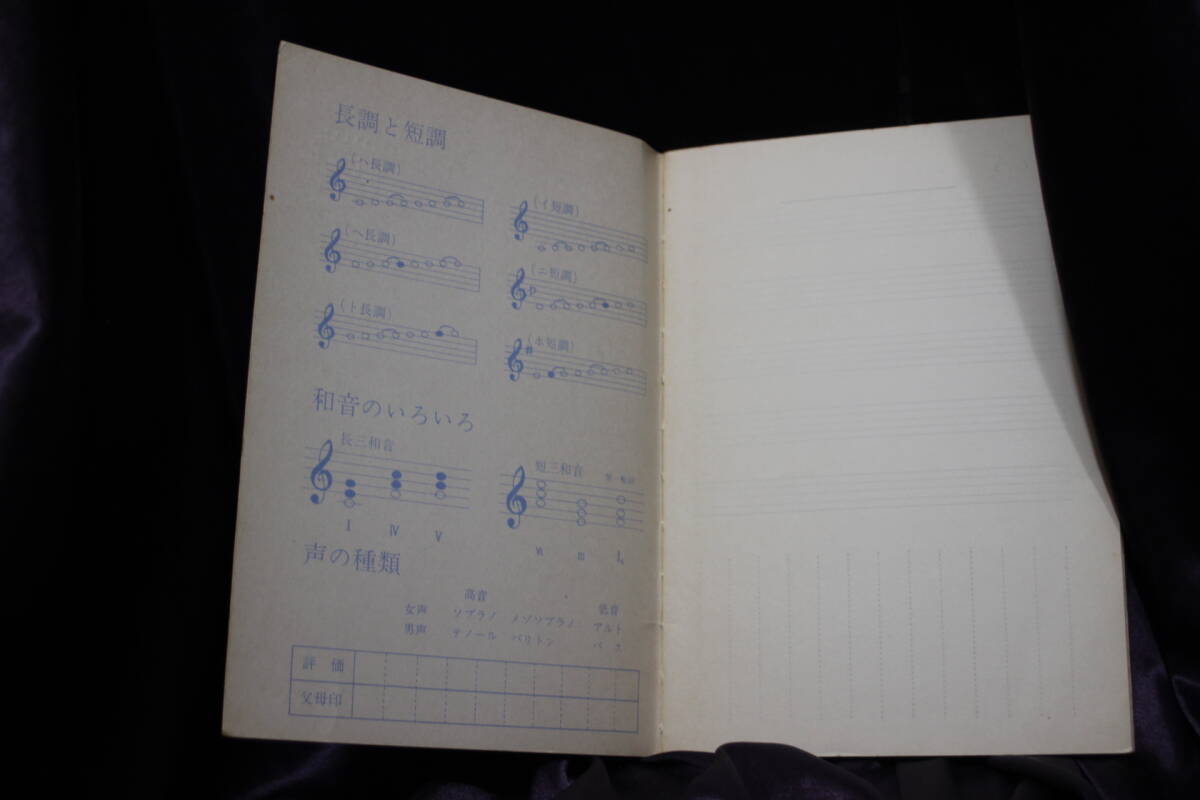 長調と短調
(ハ長調)
(イ短調)
(ヘ長調)
(ニ短調)
(ト長調)
(ホ短調)
和音のいろいろ
長三和音
短三和音
I IV V
VI III
声の種類
高音 低音
女声 ソプラノ メゾソプラノ アルト
男声 テノール バリトン バス
評価
父母印